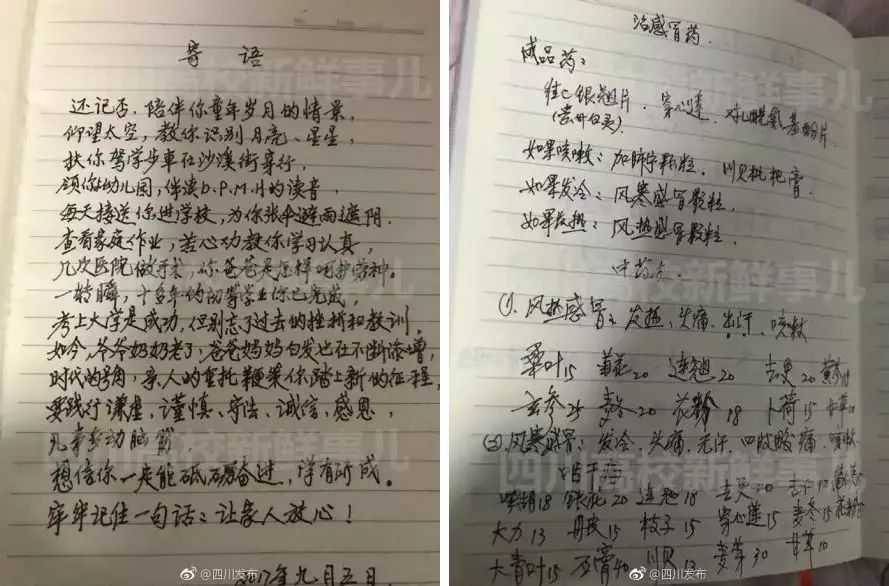 寄语
还记否,陪伴你童年岁月的情景,
仰望太空,教你识别月亮、星星,
扶你驾学步車在沙溪街穿行,
领你幼儿园,伴读b.P.M.H的读音,
每天接送你进学校,为你张伞避雨遮阴.
查看家庭作业,苦心功教你学习认真,
几次医院做手术,你爸爸是怎样呵护劳神。
一转瞬,十多年的初等学业你已完成,
考上大学是成功,但别忘了过去的挫折和教训.
如今,爷爷奶奶老了,爸爸妈妈白发也在不断添增,
时代的号角,亲人的重托鞭策你踏上新的征程,
要践行谦虚,谨慎、守法、诚信、感恩,
凡事多动脑筋
想信你一定能砥砺奋进,学有所成。
牢牢记住一句话:让家人放心!
2017年九月五日
治感冒药.
成品药:
维C银翘片.穿心莲.对乙酰氨基酚片.
如果咳嗽:加肺宁颗粒.川贝枇杷膏
如果发冷:风寒感冒颗粒.
如果发热:风热感冒颗粒.
中药方.
(1).风热感冒:发热,头痛.出汗.咳嗽
桑叶15 菊花20 连翘20 去更20 黄芩
玄参25 麦冬20 花粉18 卜荷15 甘草10
(2)风寒感冒:发冷,头痛,无汗,四肢酸痛.咳嗽.
咽干痛
柴胡18 银花20 连翘18 去更20
大力13 丹皮15 枝子15 穿心莲15 麦冬15 花粉
大青叶15 石膏40 川贝13 麦芽30 甘草10
四川高校新鲜事儿
四川高校新鲜事儿
@四川发布
@四川发布